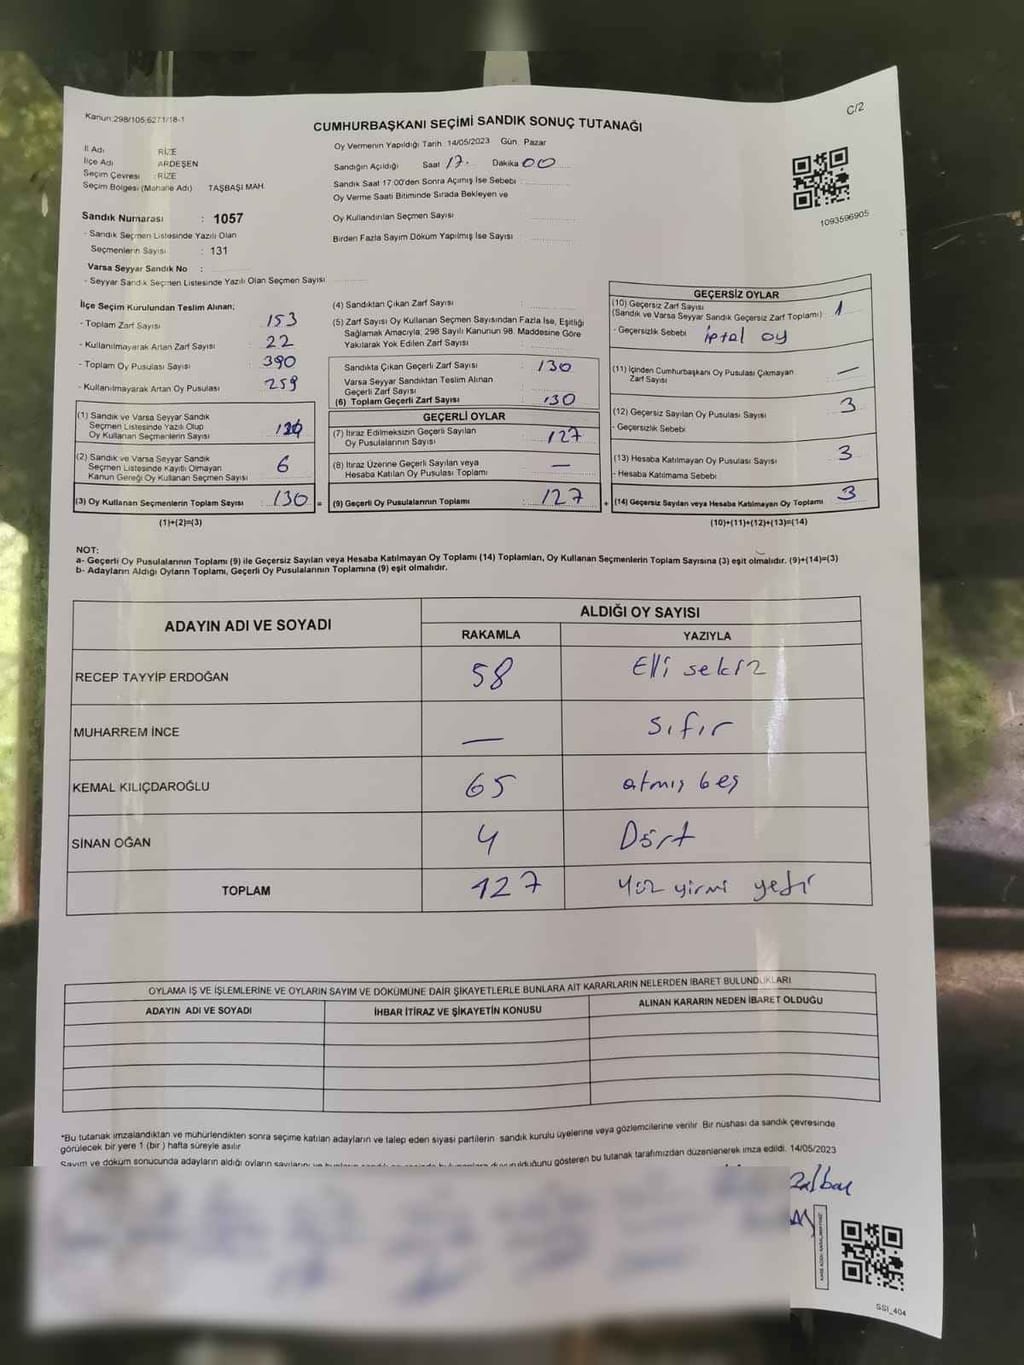 Kanun:298/105;6271/18-1
C/2
CUMHURBAŞKANI SEÇİMİ SANDIK SONUÇ TUTANAĞI
İl Adı RİZE
İlçe Adı ARDEŞEN
Seçim Çevresi : RİZE
Seçim Bölgesi (Mahalle Adı) TAŞBAŞI MAH.
Oy Vermenin Yapıldığı Tarih 14/05/2023 Gün. Pazar
Sandığın Açıldığı Saat 17. Dakika 00
Sandık Saat 17:00'den Sonra Açımış İse Sebebi
Oy Verme Saati Bitiminde Sırada Bekleyen ve
Oy Kullandırılan Seçmen Sayısı
Birden Fazla Sayım Döküm Yapılmış İse Sayısı
1093596905
Sandık Numarası : 1057
- Sandık Seçmen Listesinde Yazılı Olan
Seçmenlerin Sayısı : 131
Varsa Seyyar Sandık No :
- Seyyar Sandık Seçmen Listesinde Yazılı Olan Seçmen Sayısı
İlçe Seçim Kurulundan Teslim Alınan;
- Toplam Zarf Sayısı 153
- Kullanılmayarak Artan Zarf Sayısı 22
- Toplam Oy Pusulası Sayısı 390
- Kullanılmayarak Artan Oy Pusulası 259
(1) Sandık ve Varsa Seyyar Sandık
Seçmen Listesinde Yazılı Olup
Oy Kullanan Seçmenlerin Sayısı
(2) Sandık ve Varsa Seyyar Sandık
Seçmen Listesinde Kayıtlı Olmayan
Kanun Gereği Oy Kullanan Seçmen Sayısı 6
(3) Oy Kullanan Seçmenlerin Toplam Sayısı : 130 =
(1)+(2)=(3)
(4) Sandıktan Çıkan Zarf Sayısı :
(5) Zarf Sayısı Oy Kullanan Seçmen Sayısından Fazla İse, Eşitliği
Sağlamak Amacıyla; 298 Sayılı Kanunun 98. Maddesine Göre
Yakılarak Yok Edilen Zarf Sayısı :
Sandıkta Çıkan Geçerli Zarf Sayısı : 130
Varsa Seyyar Sandıktan Teslim Alınan
Geçerli Zarf Sayısı
(6) Toplam Geçerli Zarf Sayısı 130
GEÇERLİ OYLAR
(7) İtiraz Edilmeksizin Geçerli Sayılan
Oy Pusulalarının Sayısı : 127
(8) İtiraz Üzerine Geçerli Sayılan veya
Hesaba Katılan Oy Pusulası Toplamı : —
(9) Geçerli Oy Pusulalarının Toplamı : 127 +
GEÇERSİZ OYLAR
(10) Geçersiz Zarf Sayısı
(Sandık ve Varsa Seyyar Sandık Geçersiz Zarf Toplamı) : 1
- Geçersizlik Sebebi : iptal oy
(11) İçinden Cumhurbaşkanı Oy Pusulası Çıkmayan
Zarf Sayısı —
(12) Geçersiz Sayılan Oy Pusulası Sayısı : 3
- Geçersizlik Sebebi
(13) Hesaba Katılmayan Oy Pusulası Sayısı : 3
- Hesaba Katılmama Sebebi :
(14) Geçersiz Sayılan veya Hesaba Katılmayan Oy Toplamı 3
(10)+(11)+(12)+(13)=(14)
NOT:
a- Geçerli Oy Pusulalarının Toplamı (9) ile Geçersiz Sayılan veya Hesaba Katılmayan Oy Toplamı (14) Toplamları, Oy Kullanan Seçmenlerin Toplam Sayısına (3) eşit olmalıdır. (9)+(14)=(3)
b- Adayların Aldığı Oyların Toplamı, Geçerli Oy Pusulalarının Toplamına (9) eşit olmalıdır.
ADAYIN ADI VE SOYADI
ALDIĞI OY SAYISI
RAKAMLA YAZIYLA
RECEP TAYYİP ERDOĞAN 58 Elli sekiz
MUHARREM İNCE — sıfır
KEMAL KILIÇDAROĞLU 65 atmış beş
SİNAN OĞAN 4 Dört
TOPLAM 127 yüz yirmi yedi
OYLAMA İŞ VE İŞLEMLERİNE VE OYLARIN SAYIM VE DÖKÜMÜNE DAİR ŞİKAYETLERLE BUNLARA AİT KARARLARIN NELERDEN İBARET BULUNDUKLARI
ADAYIN ADI VE SOYADI İHBAR İTİRAZ VE ŞİKAYETİN KONUSU ALINAN KARARIN NEDEN İBARET OLDUĞU
*Bu tutanak imzalandıktan ve mühürlendikten sonra seçime katılan adayların ve talep eden siyasi partilerin sandık kurulu üyelerine veya gözlemcilerine verilir. Bir nüshası da sandık çevresinde
görülecek bir yere 1 (bir) hafta süreyle asılır
Sayım ve döküm sonucunda adayların aldığı oyların sayılarını
bu tutanak tarafımızdan düzenlenerek imza edildi. 14/05/2023
SSİ_404